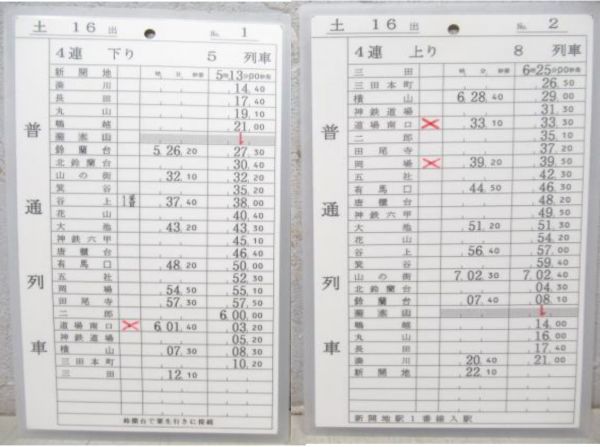 土 16出 No. 1
4連 下り 5 列車
普通列車
新開地 5時13分00秒発
湊川 14.40
長田 17.40
丸山 19.10
鵯越 21.00
菊水山 ↓
鈴蘭台 5.26.20 27.30
北鈴蘭台 30.40
山の街 32.10 32.20
箕谷 35.20
谷上 1番 37.40 38.00
花山 40.40
大池 43.20 43.30
神鉄六甲 45.10
唐櫃台 46.40
有馬口 48.20 50.00
五社 52.30
岡場 54.50 55.10
田尾寺 57.30 57.50
二郎 6.00.00
道場南口 × 6.01.40 03.20
神鉄道場 05.20
横山 07.30 08.30
三田本町 10.20
三田 12.10
鈴蘭台で粟生行きに接続
土 16出 No. 2
4連 上り 8 列車
普通列車
着 分 秒着
三田 6時25分00秒発
三田本町 26.50
横山 6.28.40 29.00
神鉄道場 31.30
道場南口 × 33.10 33.30
二郎 35.10
田尾寺 37.20
岡場 × 39.20 39.50
五社 42.30
有馬口 44.50 46.30
唐櫃台 48.20
神鉄六甲 49.50
大池 51.20 51.30
花山 54.20
谷上 56.40 57.00
箕谷 59.40
山の街 7.02.30 7.02.40
北鈴蘭台 04.30
鈴蘭台 07.40 08.10
菊水山 ↓
鵯越 14.00
丸山 16.00
長田 17.40
湊川 20.40 21.00
新開地 22.10
新開地駅1番線入駅